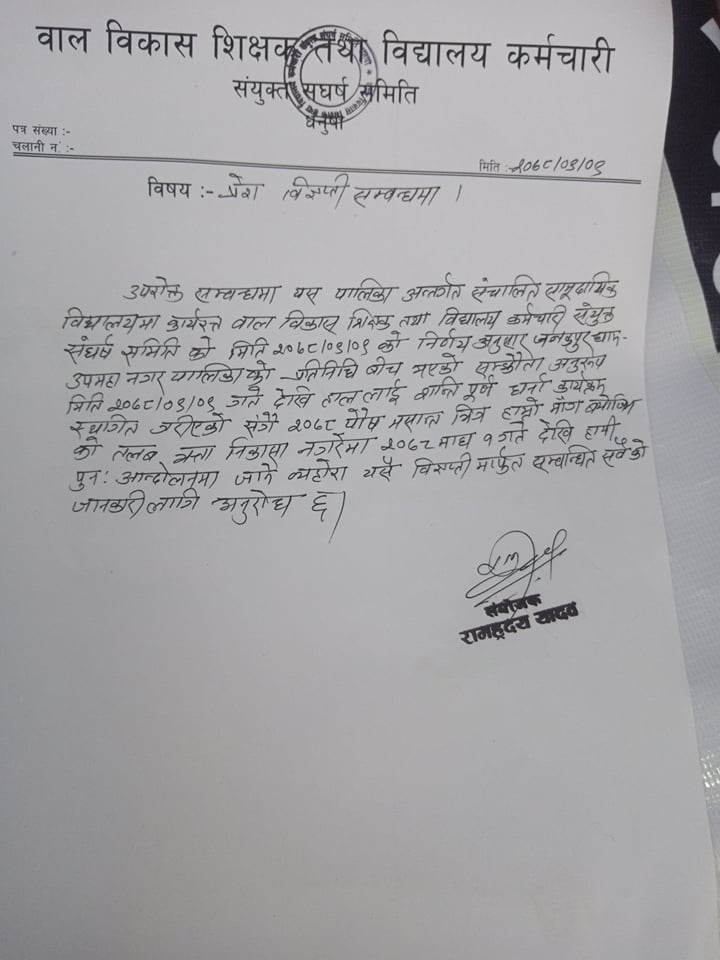 वाल विकास शिक्षक तथा विद्यालय कर्मचारी
संयुक्त सघर्ष समिति
धनुषा
पत्र संख्या :-
चलानी न‌ं :-
मिति :- २०७८/०९/०९
विषय :- प्रेश विज्ञप्ती सम्वन्धमा ।
उपरोक्त सम्वन्धमा यस पालिका अन्तर्गत संचालित सामूदायिक
विद्यालयमा कार्यरत वाल विकास शिक्षक तथा विद्यालय कर्मचारी संयुक्त
संघर्ष समिति को मिति २०७८/०९/०९ को निर्णय अनुसार जनकपुरधाम-
उपमहानगरपालिकाको प्रतिनिधि बीच भएको सम्झौता अनुरूप
मिति २०७८/०९/०९ गते देखि हाललाई शान्ति पूर्ण धर्ना कार्यक्रम
स्थगित गरीएको संगै २०७८ पौष मसान्त भित्र हाम्रो माँग वमोजिम
को तलब भत्ता निकासा नगरेमा २०७८ माघ १ गते देखि हामी
पुन: आन्दोलनमा जाने व्यहोरा यसै विज्ञप्ती मार्फत सम्बन्धित सवै को
जानकारी लागि अनुरोध छ।
संयोजक
रामहृदय यादव